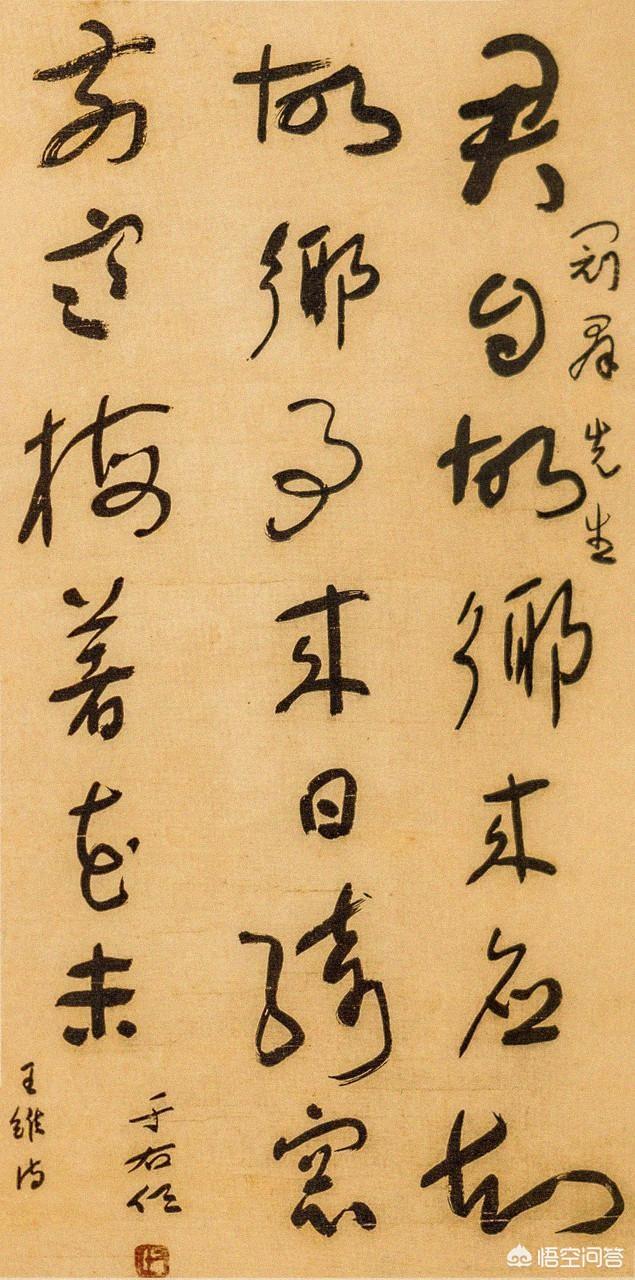 冠群先生
君自故鄉來應知
故鄉事來日綺窗
前寒梅著花未
于右任
王維詩
悟空问答